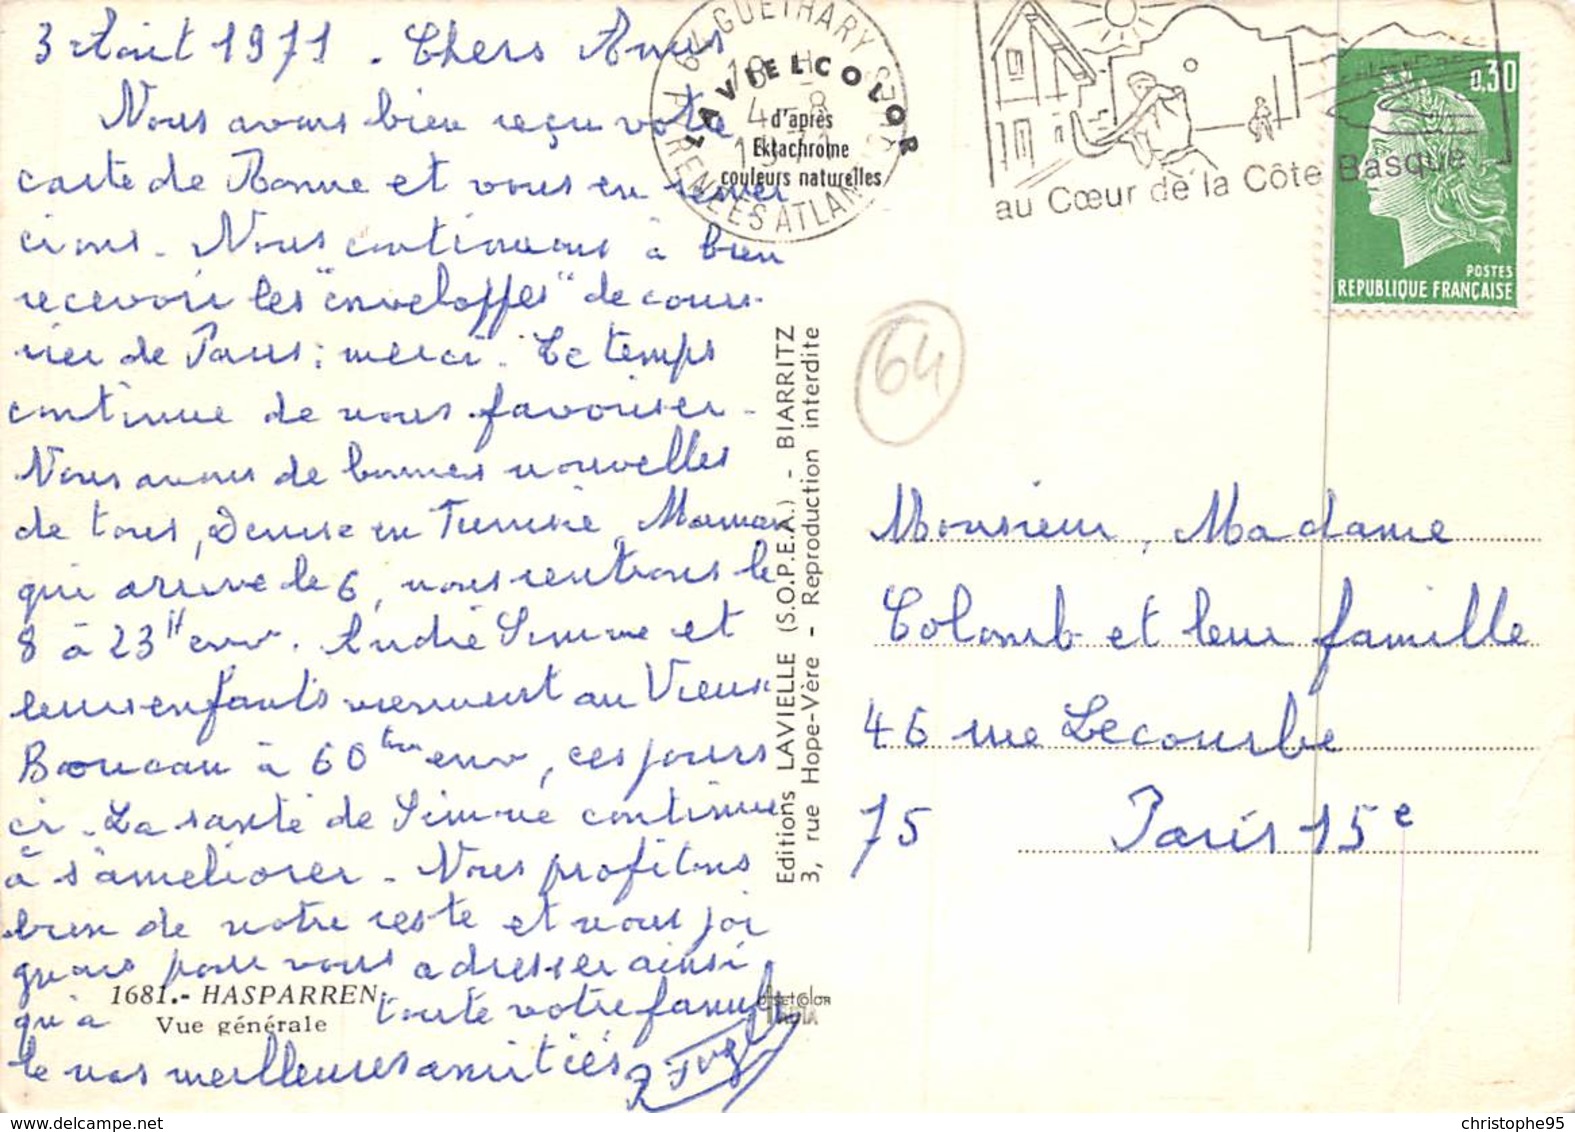 3 Août 1971 . Chers Amis
Nous avons bien reçu votre
carte de Rome et vous en remer
cions. Nous continuons à bien
recevoir les "enveloppes" de cour-
rier de Paris ; merci. Le temps
continue de nous favoriser.
Nous avons de bonnes nouvelles
de tous, Denise en Tunisie, Maman
qui arrive le 6, nous rentrons le
8 à 23H env. André Simone et
leurs enfants viennent au Vieux
Boucau à 60 env, ces jours
ci. La santé de Simone continue
à s'améliorer. Nous profitons
bien de notre reste et nous joi
gnons pour vous adresser ainsi
qu'à toute votre famil
le nos meilleures amitiés
1681.- HASPARREN
Vue générale
LAVIELCOLOR
d'après
Ektachrome
couleurs naturelles
64 GUETHARY
18 H
4-8
1971
PYRENEES ATLANTIQUES
au Cœur de la Côte Basque
0,30
POSTES
REPUBLIQUE FRANÇAISE
64
Editions LAVIELLE (S.O.P.E.A.) - BIARRITZ
3, rue Hope-Vère - Reproduction interdite
Monsieur, Madame
Colomb et leur famille
46 rue Lecourbe
75 Paris 15e
christophe95